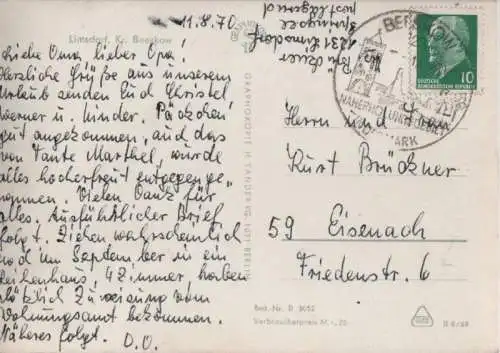 Limsdorf, Kr. Beeskow
11.8.70.
Liebe Oma, lieber Opa!
Herzliche Grüße aus unserem
Urlaub senden Euch Christel,
Werner u. Kinder. Päckchen
gut angekommen, auch das
von Tante Marthel, wurde
alles hocherfreut entgegenge-
nommen. Vielen Dank für
alles. Ausführlicher Brief
folgt. Ziehen wahrscheinlich
noch im September in ein
Reihenhaus, 4 Zimmer, haben
plötzlich Zuweisung vom
Wohnungsamt bekommen.
Näheres folgt. D.O.
1231 Limsdorf
Springsee
postlagernd
BEESKOW
NAHERHOLUNGSGEBIET
MARK
10
DEUTSCHE
DEMOKRATISCHE REPUBLIK
Herrn und Frau
Kurt Brückner
59 Eisenach
Friedenstr. 6
Best.-Nr. B 8052
Verbraucherpreis M -,20
II 8/69